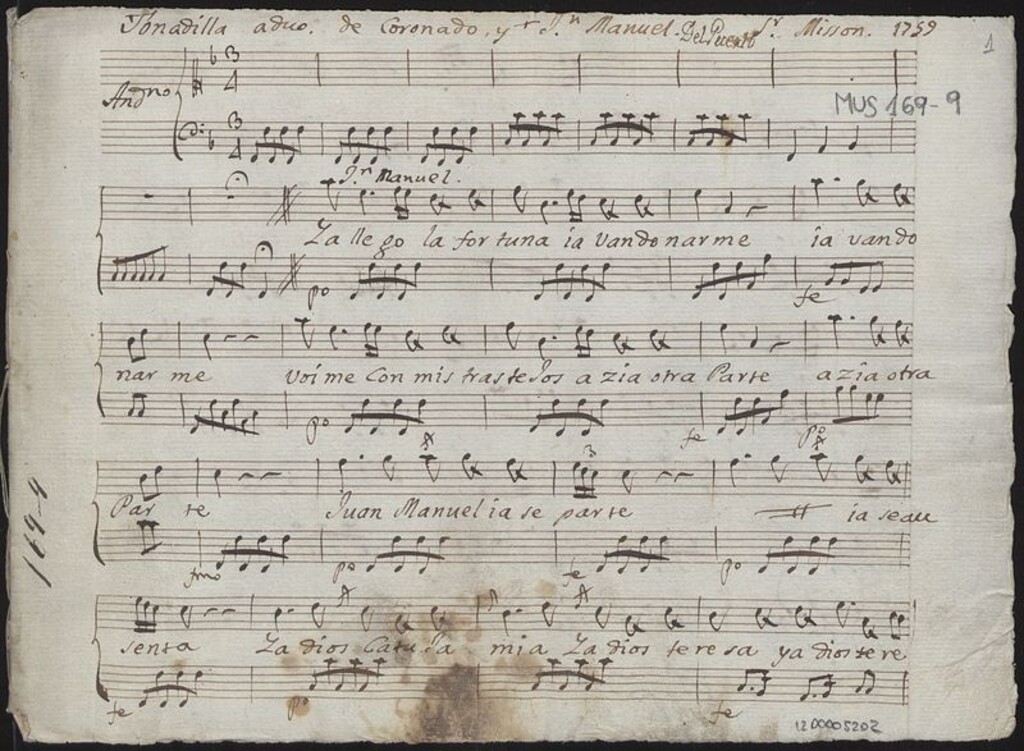 Tonadilla aduo. de Coronado, y Sr. Jn. Manuel. Del Puerto Sr. Misson. 1759
1
Andno
MUS 169-9
Jn Manuel.
Ya llego la fortuna ia vandonarme ia vando
po fe
narme voime Con mis trastejos a zia otra Parte a zia otra
po fe po
Parte Juan Manuel ia se parte ia seau
fmo po fe po
senta Ya dios mia Ya dios teresa ya dios tere
fe po fe
169-9
1200005202